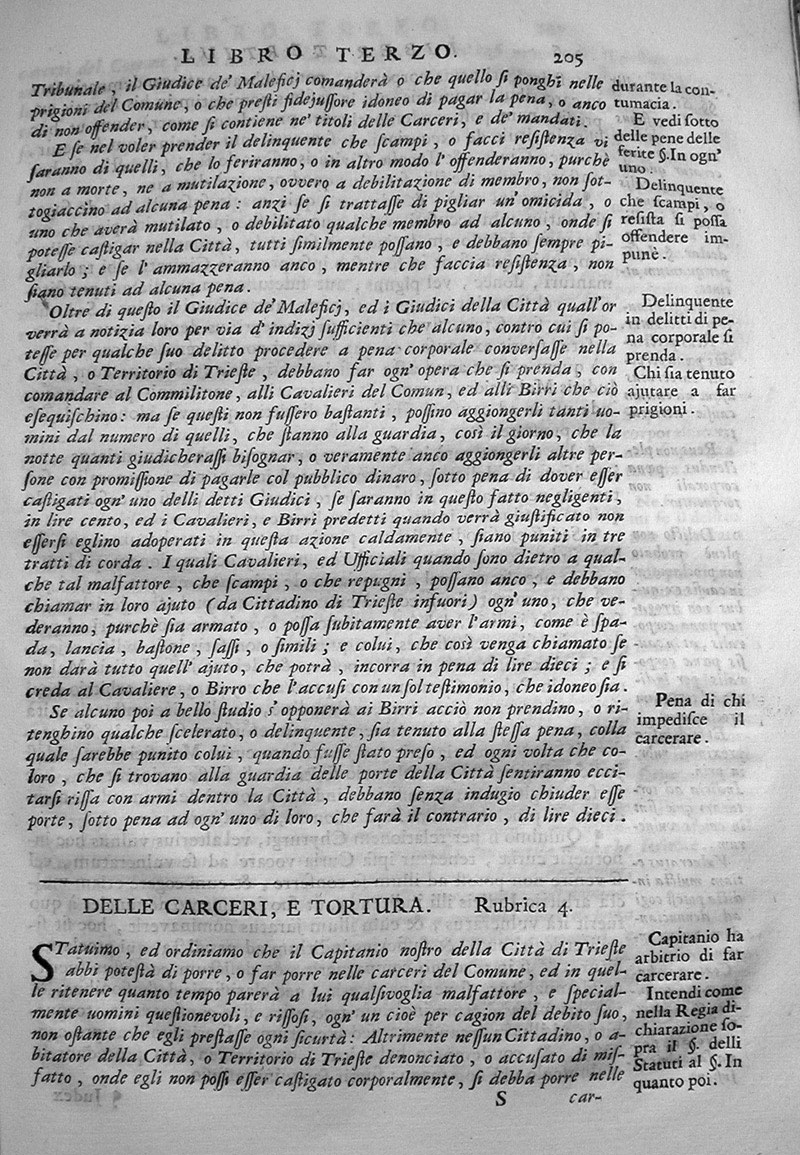 LIBRO TERZO. 205
Tribunale, il Giudice de' Maleficj comanderà o che quello ſi ponghi nelle
prigioni del Comune, o che preſti fidejuſſore idoneo di pagar la pena, o anco
di non offender, come ſi contiene ne' titoli delle Carceri, e de' mandati.
E ſe nel voler prender il delinquente che ſcampi, o facci reſiſtenza vi
ſaranno di quelli, che lo feriranno, o in altro modo l' offenderanno, purchè
non a morte, ne a mutilazione, ovvero a debilitazione di membro, non ſot-
togiaccino ad alcuna pena: anzi ſe ſi trattaſſe di pigliar un' omicida, o
uno che averà mutilato, o debilitato qualche membro ad alcuno, onde ſi
poteſſe caſtigar nella Città, tutti ſimilmente poſſano, e debbano ſempre pi-
gliarlo; e ſe l' ammazzeranno anco, mentre che faccia reſiſtenza, non
ſiano tenuti ad alcuna pena.
Oltre di queſto il Giudice de' Maleficj, ed i Giudici della Città quall' or
verrà a notizia loro per via d' indizj ſufficienti che alcuno, contro cui ſi po-
teſſe per qualche ſuo delitto procedere a pena corporale converſaſſe nella
Città, o Territorio di Trieſte, debbano far ogn' opera che ſi prenda, con
comandare al Commilitone, alli Cavalieri del Comun, ed alli Birri che ciò
eſequiſchino: ma ſe queſti non fuſſero baſtanti, poſſino aggiongerli tanti uo-
mini dal numero di quelli, che ſtanno alla guardia, così il giorno, che la
notte quanti giudicheraſſi biſognar, o veramente anco aggiongerli altre per-
ſone con promiſſione di pagarle col pubblico dinaro, ſotto pena di dover eſſer
caſtigati ogn' uno delli detti Giudici, ſe ſaranno in queſto fatto negligenti,
in lire cento, ed i Cavalieri, e Birri predetti quando verrà giuſtificato non
eſſerſi eglino adoperati in queſta azione caldamente, ſiano puniti in tre
tratti di corda. I quali Cavalieri, ed Ufficiali quando ſono dietro a qual-
che tal malfattore, che ſcampi, o che repugni, poſſano anco, e debbano
chiamar in loro ajuto (da Cittadino di Trieſte infuori) ogn' uno, che ve-
deranno, purchè ſia armato, o poſſa ſubitamente aver l'armi, come è ſpa-
da, lancia, baſtone, ſaſſi, o ſimili; e colui, che così venga chiamato ſe
non darà tutto quell' ajuto, che potrà, incorra in pena di lire dieci; e ſi
creda al Cavaliere, o Birro che l'accuſi con un ſol teſtimonio, che idoneo ſia.
Se alcuno poi a bello ſtudio s' opponerà ai Birri acciò non prendino, o ri-
tenghino qualche ſcelerato, o delinquente, ſia tenuto alla ſteſſa pena, colla
quale ſarebbe punito colui, quando fuſſe ſtato preſo, ed ogni volta che co-
loro, che ſi trovano alla guardia delle porte della Città ſentiranno ecci-
tarſi riſſa con armi dentro la Città, debbano ſenza indugio chiuder eſſe
porte, ſotto pena ad ogn' uno di loro, che farà il contrario, di lire dieci.
durante la con-
tumacia.
E vedi ſotto
delle pene delle
ferite §. In ogn'
uno.
Delinquente
che ſcampi, o
reſiſta ſi poſſa
offendere im-
punè.
Delinquente
in delitti di pe-
na corporale ſi
prenda.
Chi ſia tenuto
ajutare a far
prigioni.
Pena di chi
impediſce il
carcerare.
DELLE CARCERI, E TORTURA. Rubrica 4.
STatuimo, ed ordiniamo che il Capitanio noſtro della Città di Trieſte
abbi poteſtà di porre, o far porre nelle carceri del Comune, ed in quel-
le ritenere quanto tempo parerà a lui qualſivoglia malfattore, e ſpecial-
mente uomini queſtionevoli, e riſſoſi, ogn' un cioè per cagion del debito ſuo,
non oſtante che egli preſtaſſe ogni ſicurtà: Altrimente neſſun Cittadino, o a-
bitatore della Città, o Territorio di Trieſte denonciato, o accuſato di miſ-
fatto, onde egli non poſſi eſſer caſtigato corporalmente, ſi debba porre nelle
S car-
Capitanio ha
arbitrio di far
carcerare.
Intendi come
nella Regia di-
chiarazione ſo-
pra il §. delli
Statuti al §. In
quanto poi.